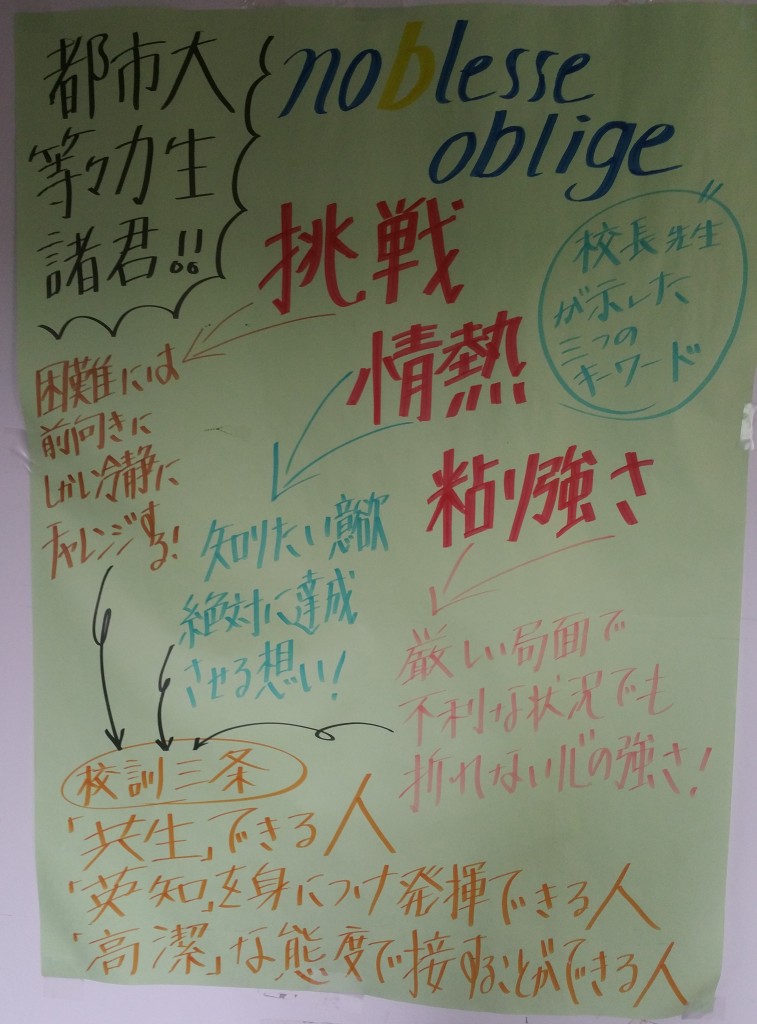 都市大
等々力生
諸君!!
noblesse
oblige
校長先生
が示した
三つの
キーワード
挑戦
情熱
粘り強さ
困難には
前向きに
しかし冷静に
チャレンジする!
知りたい意欲
絶対に達成
させる想い!
厳しい局面で
不利な状況でも
折れない心の強さ!
校訓三条
「共生」できる人
「英知」を身につけ発揮できる人
「高潔」な態度で接することができる人